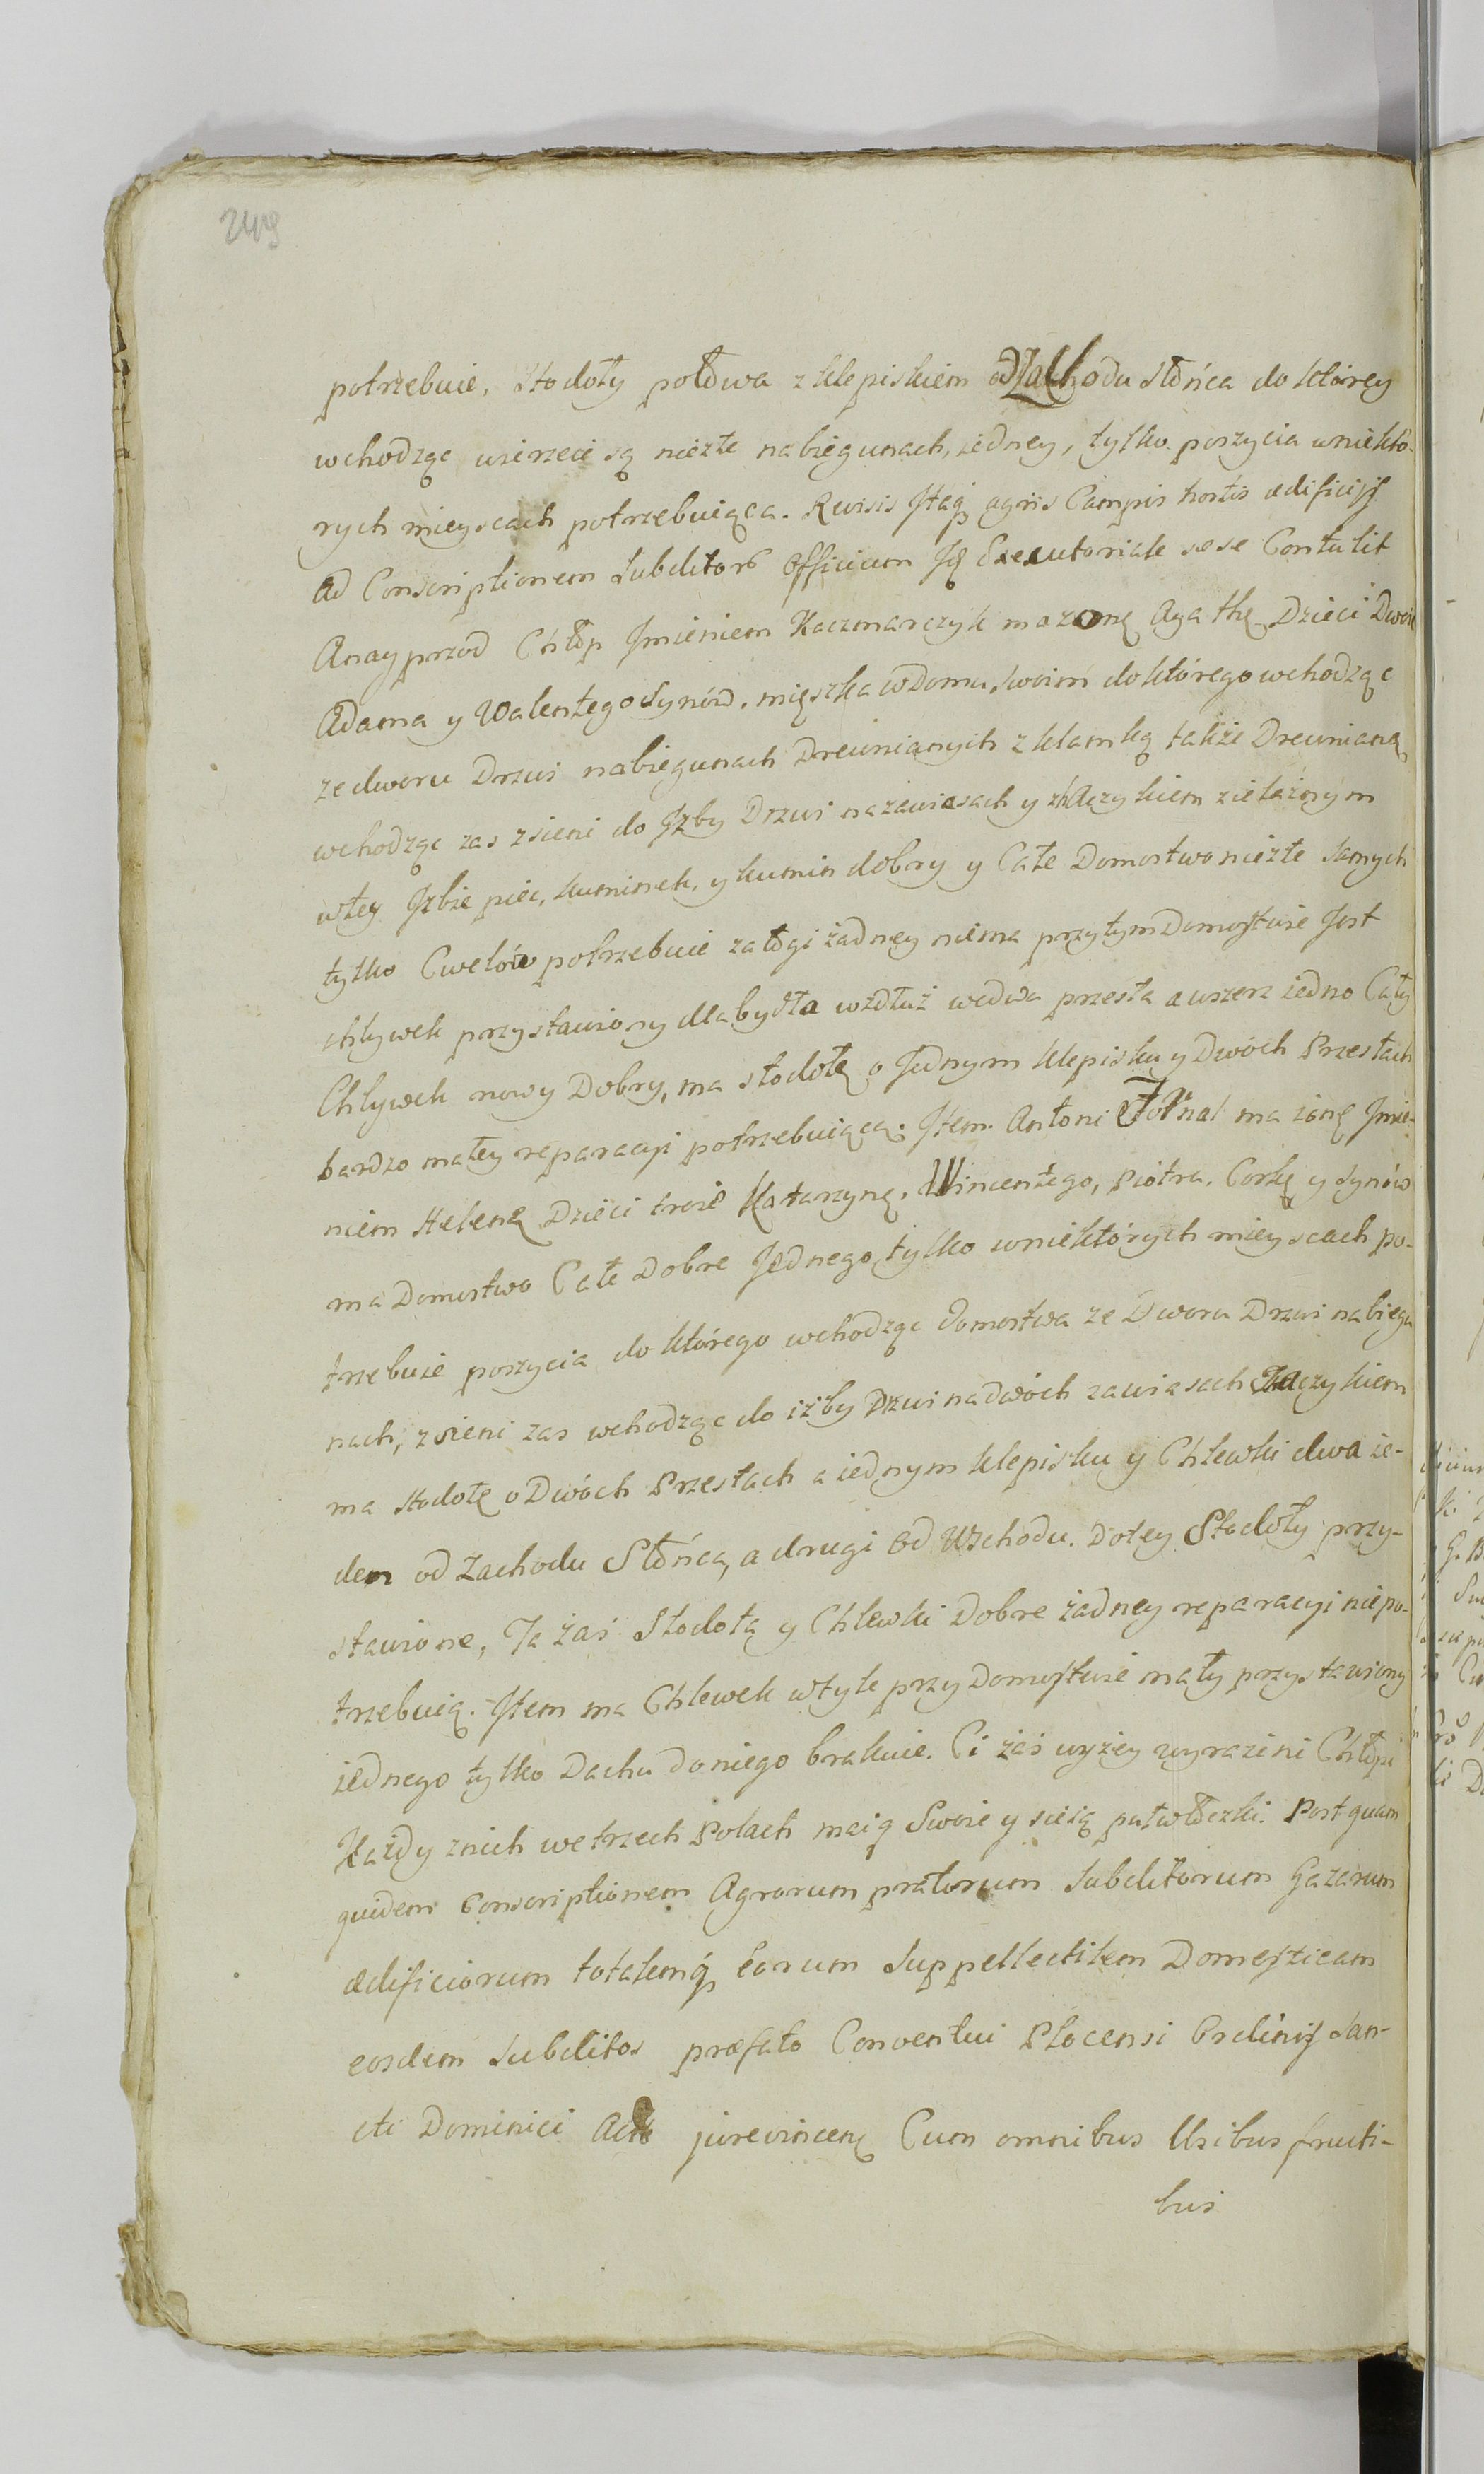 249
potrzebuie, stodoły połdwa z klepiskiem od Zachodu słońca do którey
wchodząc wierzeie są nieźłe nabiegunach, iedney, tylko poszycia wniektó-
rych mieyscach potrzebuiąca. Revisis Itaq agris Campis hortis ædificijs
ad Conscriptionem Subditorũ Officium Executoriale sese Contulit
Anayprzod Chłop Jmieniem Kaczmarczyk mazonę Agathę Dzieci Dwoie
Adama y Walentego Synów. mięszka wDomu swoim do którego wchodząc
ze dworu Drzwi nabiegunach Drewnianych z klamką także Drewnianą
wchodząc zas zsieni do Jzby Drzwi nazawiasach y zhaczykiem zielaźnym
wtey Jzbie piec, kuminek, y kumin dobry y Całe Domostwo nieźłe samych
tylko Cwelów potrzebuie załogi żadney niema przytym Domostwie Jest
chlywek przystawiony dla bydła wzdłuż wedwa przesła a wszerz iedno Cały
Chlywek nowy Dobry, ma stodołę o Jednym klepisku y Dwóch Przesłach
bardzo małey reparacyi potrzebuiącą. Item Antoni Fornal ma żonę Jmie-
niem Helenę Dzieci troie Katarzynę, Wincentego, Piotra, Corkę y Synów
ma Domostwo Całe Dobre Jednego tylko wniektórych mieyscach po-
trzebuie poszycia do którego wchodząc Domostwa ze Dworu Drzwi nabiegu
nach, zsieni zas wchodząc do izby Drzwi nadwóch zawiasach haczykiem
ma stodołę o Dwóch Przesłach a iednym klepisku y Chlewki dwa ie-
den od Zachodu Słońca, a drugi od Wschodu. Dotey Stodoły przy-
stawione, Ta żaś Stodoła y Chlewki Dobre żadney reparacyi niepo-
trzebuią. Item ma Chlewek wtyle przy Domostwie mały przystawiony
iednego tylko Dachu Doniego brakuie. Ci żaś wyżey wyrazini Chłopi
Każdy znich wetrzech Polach maią Swoie y sieią pułwłoczki. Postquam
quidem Conscriptionem Agrorum pratorum Subditorum Gazarum
ædificiorum totalemq́ Eorum Suppellectilem Domesticam
eosdem Subditos præfato Conventui Plocensi Ordinis San-
cti Dominici jurevincenẽ Cum omnibus Usibus fructi-
bus